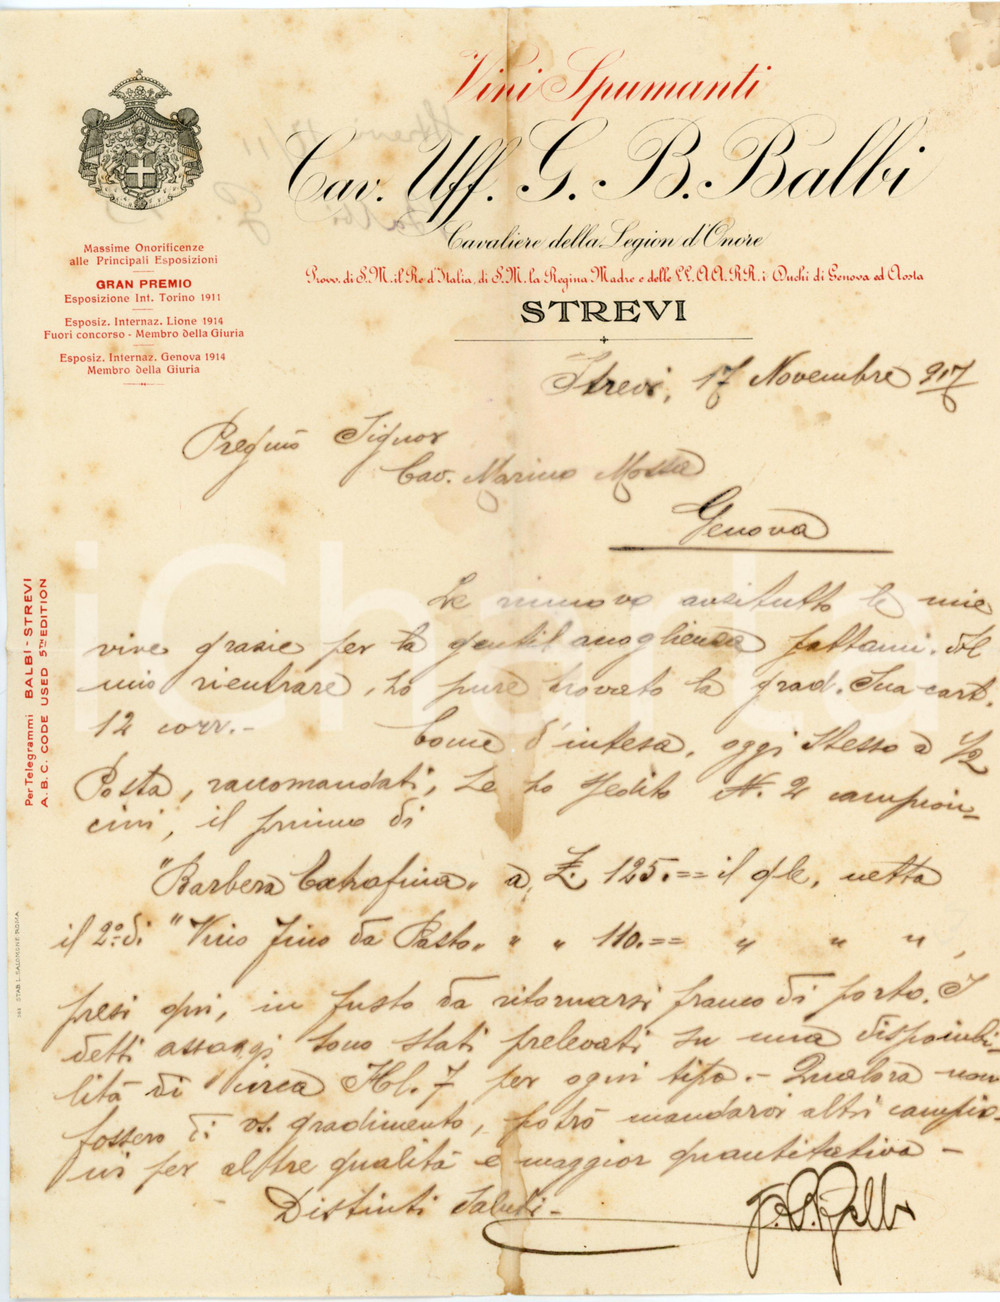 Vini Spumanti
Cav. Uff. G. B. Balbi
Cavaliere della Legion d'Onore
Provv. di S. M. il Re d'Italia, di S. M. la Regina Madre e delle LL. AA. RR. i Duchi di Genova ed Aosta
STREVI
Massime Onorificenze
alle Principali Esposizioni
GRAN PREMIO
Esposizione Int. Torino 1911
Esposiz. Internaz. Lione 1914
Fuori concorso - Membro della Giuria
Esposiz. Internaz. Genova 1914
Membro della Giuria
Strevi, 17 Novembre 917
Pregmo Signor
Cav. Marino Mossa
Genova
Le rinnovo anzitutto le mie
vive grazie per la gentil accoglienza fattami. Al
mio rientrare, ho pure trovato la grad. Sua cart.
12 corr.-
Come d'intesa, oggi stesso a 1/2
Posta, raccomandati, Le ho spedito N. 2 campion-
cini, il primo di
"Barbera Extrafina" a £. 125.== il qle, netto
il 2º di "Vino Fino da Pasto" " " 110.== " " ",
presi qui, in fusto da ritornarsi franco di porto. I
detti assaggi sono stati prelevati su una disponibi-
lità di circa Hl. 7 per ogni tipo.- Qualora non
fossero di vs. gradimento, potrò mandarvi altri campio-
ni per altre qualità e maggior quantitativo -
Distinti Saluti -
G. B. Balbi
Per Telegrammi BALBI - STREVI
A. B. C. CODE USED 5TH EDITION
STAB. L. SALOMONE ROMA
iCharta